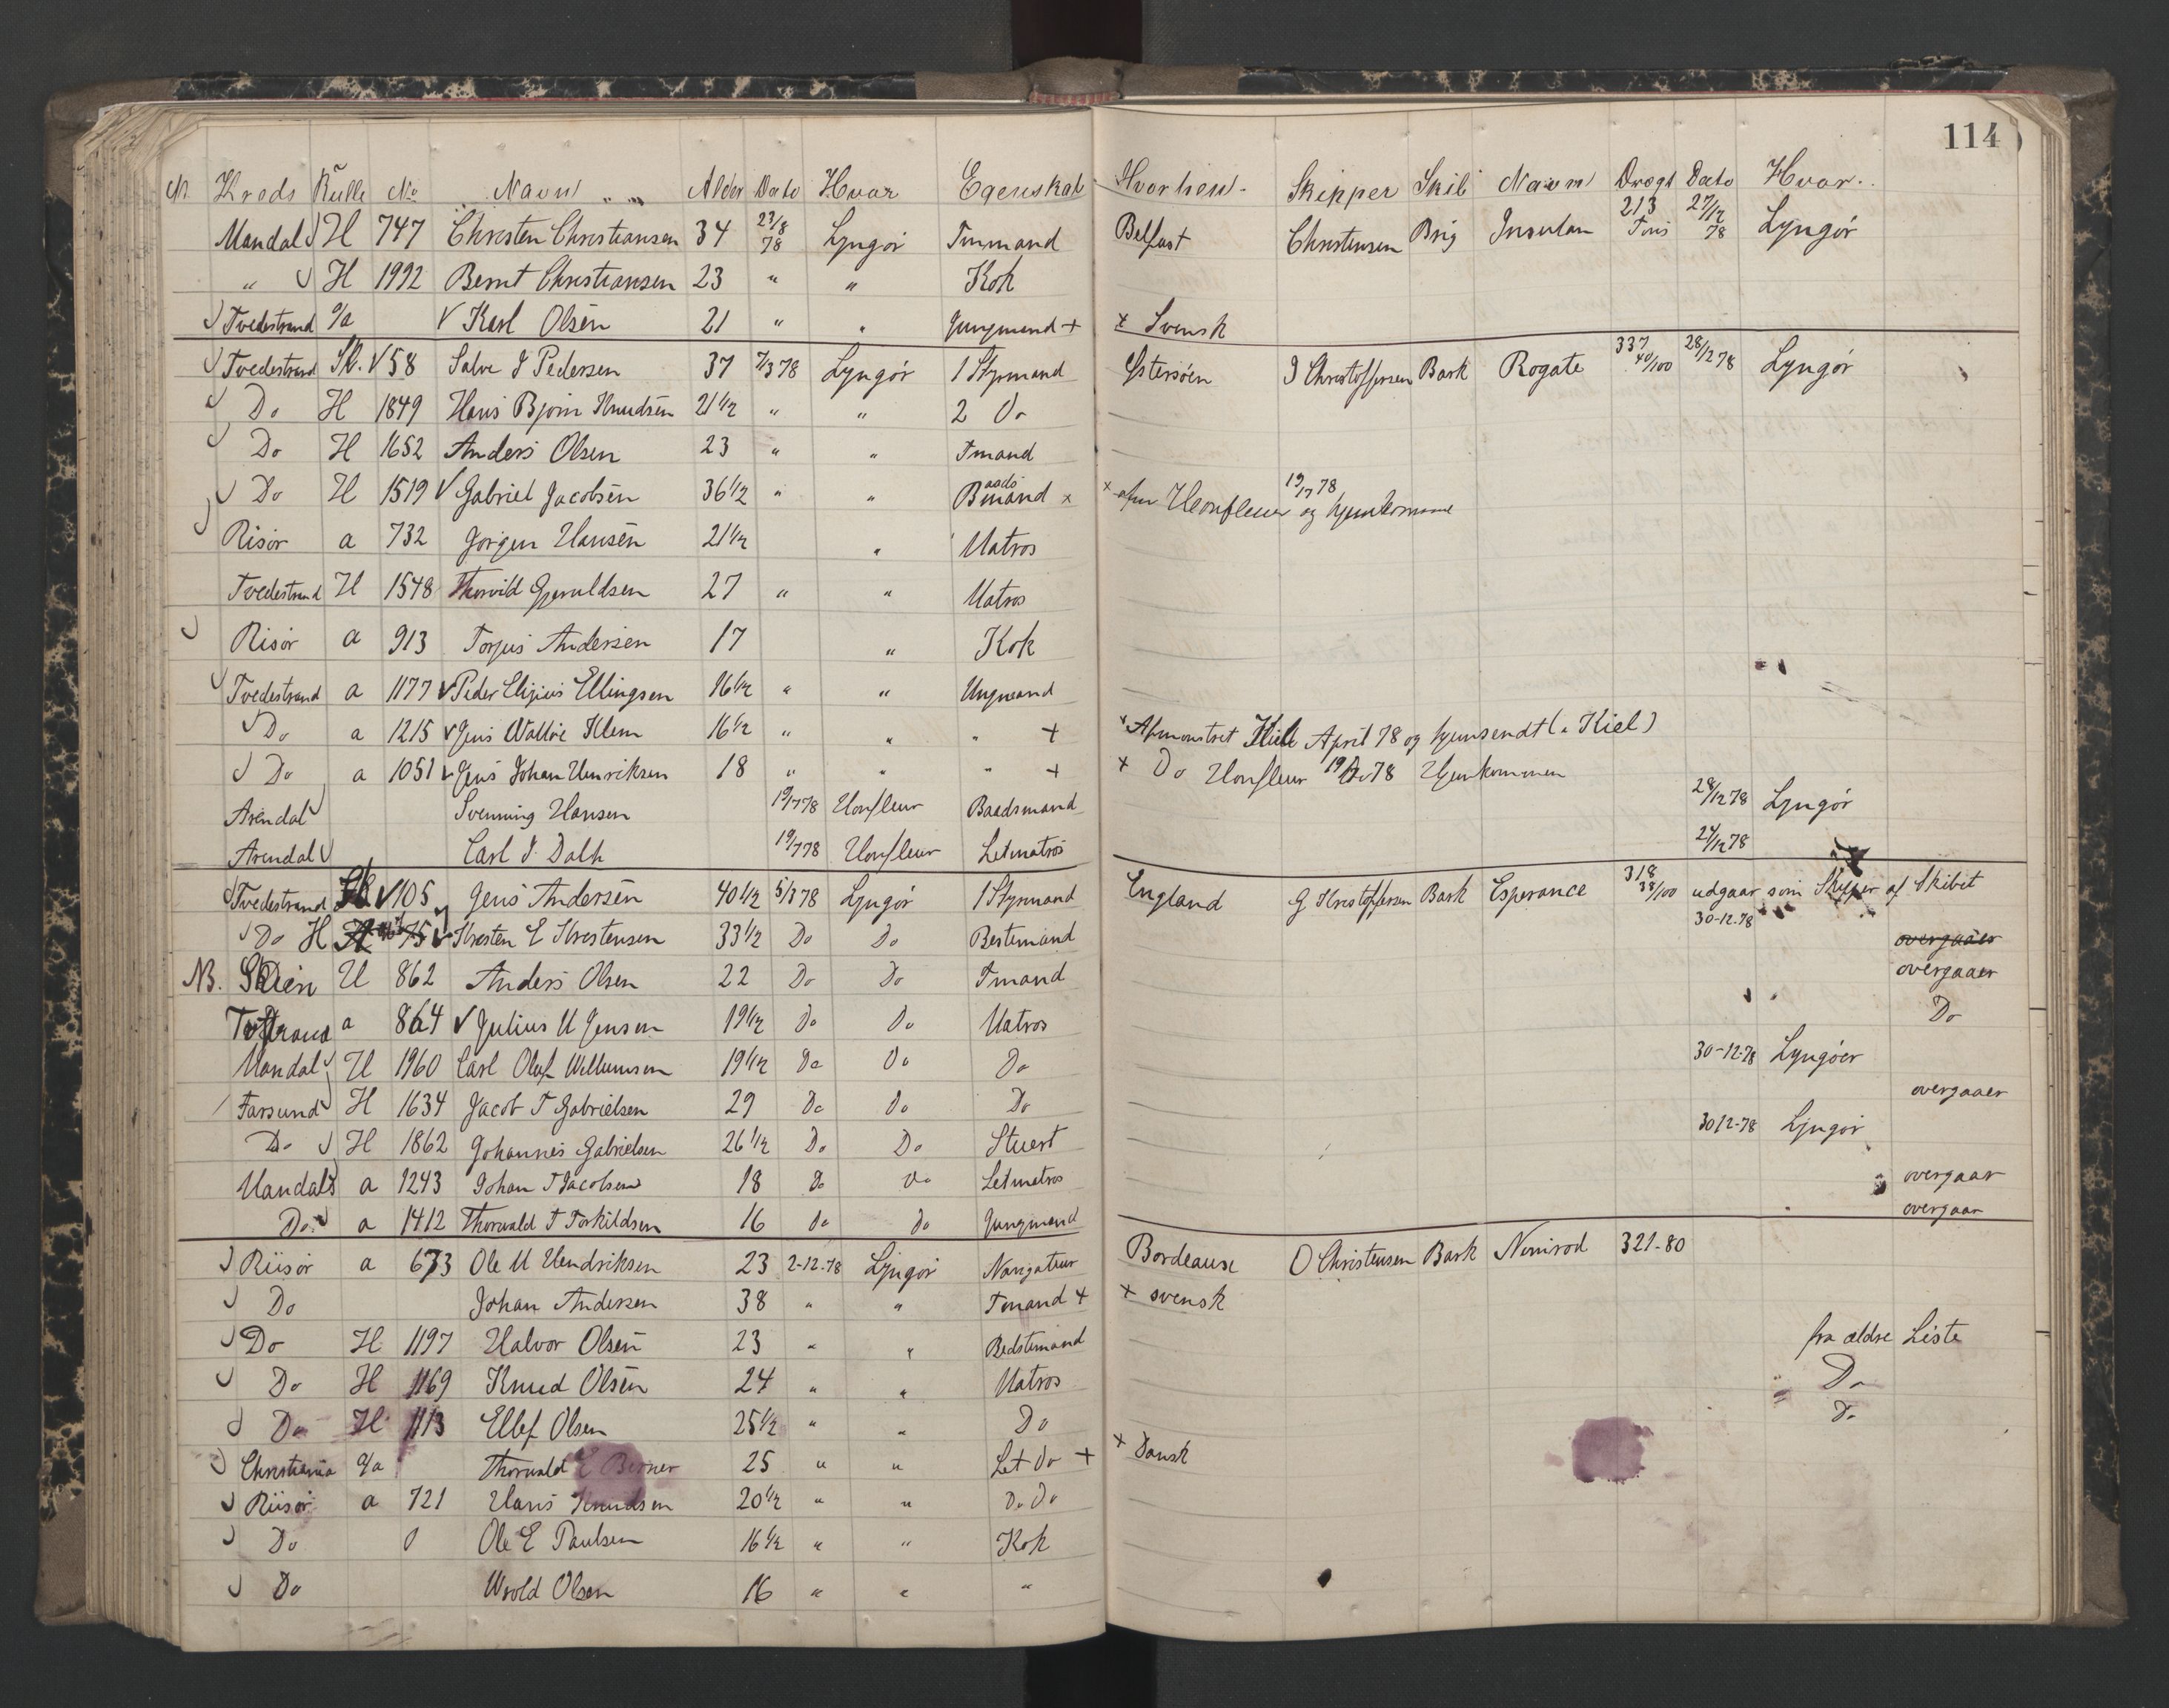 114
N. Kreds Rulle No Navn Alder Dato Hvor Egenskab Hvorhen Skipper Skib Navn Drægt Dato Hvor
Mandal H 747 Christen Christiansen 34 23/8 78 Lyngör Tmmand Belfast Christensen Brig Insulan 213 Tons 27/12 78 Lyngör
" H 1992 Bernt Christiansen 23 " " Kok
Tvedestrand o/a Karl Olsen 21 " " Jungmand + + Svensk
Tvedestrand Sk. 58 Salve J Pedersen 37 7/3 78 Lyngör 1 Styrmand Østersöen J Christoffersen Bark Rogate 337 40/100 28/12 78 Lyngör
Do H 1849 Hans Bjorn Knudsen 21 1/2 " " 2 Do
Do H 1652 Anders Olsen 23 " " Tmand
Do H 1519 Gabriel Jacobsen 36 1/2 " " Baadsmand x x afm Honfleur 19/7 78 og hjemkommen
Risör a 732 Jorgen Hansen 21 1/2 " Matros
Tvedestrand H 1548 Thorvild Gjeruldsen 27 " " Matros
Risör a 913 Torjus Andersen 17 " Kok
Tvedestrand a 1177 Peder Elijius Ellingsen 16 1/2 " " Ungmand
Do a 1215 Jens Walløe Klem 16 1/2 " " " + x Afmønstret Kiel April 78 og hjemsendt (a Kiel)
Do a 1051 Jens Johan Henriksen 18 " " " + + Do Honfleur 19/7 78 Hjemkommen
Arendal Svenning Hansen 19/7 78 Honfleur Baadsmand 28/12 78 Lyngör
Arendal Carl J. Dalh 19/7 78 Honfleur Letmatros 24/12 78
Tvedestrand Sk 105 Jens Andersen 40 1/2 5/3 78 Lyngör 1 Styrmand England G Kristoffersen Bark Esperance 318 38/100 udgaar som Skipper af Skibet
Do H 75 Kresten E Kristensen 33 1/2 Do Do Bestemand 30-12-78 overgaaer
NB. Skien H 862 Anders Olsen 22 Do Do Tmand overgaaer
Tvestrand a 864 Julius M Jensen 19 1/2 Do Do Matros Do
Mandal H 1960 Carl Oluf Willumsen 19 1/2 Do Do Do 30-12-78 Lyngöer
Farsund H 1634 Jacob T Gabrielsen 29 Do Do Do overgaaer
Do H 1862 Johannes Gabrielsen 26 1/2 Do Do Stuert 30 12-78 Lyngör
Mandals a 1243 Johan T Jacobsen 18 Do Do Letmatros overgaar
Do a 1412 Thorvald T Torkildsen 16 Do Do Jungmand overgaar
Riisör a 673 Ole M Hendriksen 23 2-12-78 Lyngör Navigateur Bordeaux O Christensen Bark Nimrod 321-80
Do Johan Andersen 38 " " Tmand + + svensk
Do H 1197 Halvor Olsen 23 " " Bedstemand fra ældre Liste
Do H 1169 Knud Olsen 24 " " Matros Do
Do H 1113 Ellef Olsen 25 1/2 " " Do Do
Christiania o/a Thorvald E Berner 25 " " Let Do + + Dansk
Riisör a 721 Hans Knudsen 20 1/2 " " Do Do
Do 0 Ole E Paulsen 16 1/2 " " Kok
Do Wrold Olsen 16 " " "